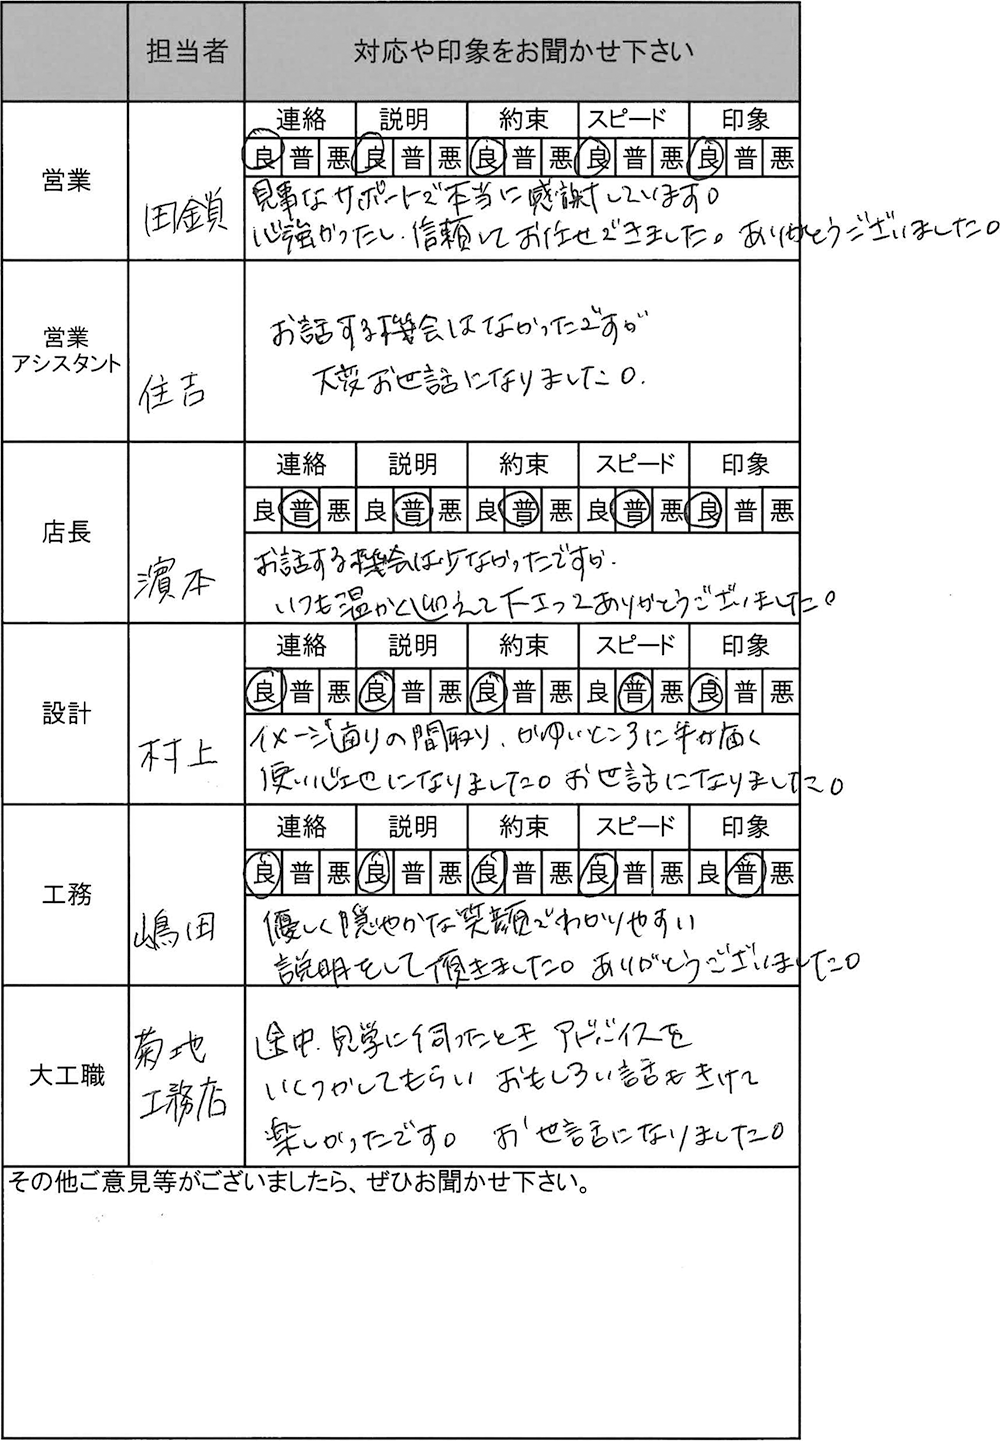 担当者 対応や印象をお聞かせ下さい
営業 田鎖
連絡 説明 約束 スピード 印象
良 普 悪 良 普 悪 良 普 悪 良 普 悪 良 普 悪
見事なサポートで本当に感謝しています。
心強かったし、信頼してお任せできました。ありがとうございました。
営業
アシスタント 住吉
お話する機会はなかったですが
大変お世話になりました。
店長 濱本
連絡 説明 約束 スピード 印象
良 普 悪 良 普 悪 良 普 悪 良 普 悪 良 普 悪
お話する機会は少なかったですが、
いつも温かく迎えて下さってありがとうございました。
設計 村上
連絡 説明 約束 スピード 印象
良 普 悪 良 普 悪 良 普 悪 良 普 悪 良 普 悪
イメージ通りの間取り、かゆいところに手が届く
使い心地になりました。お世話になりました。
工務 嶋田
連絡 説明 約束 スピード 印象
良 普 悪 良 普 悪 良 普 悪 良 普 悪 良 普 悪
優しく穏やかな笑顔でわかりやすい
説明をして頂きました。ありがとうございました。
大工職 菊地
工務店
途中、見学に伺ったとき アドバイスを
いくつかしてもらい おもしろい話もきけて
楽しかったです。 お世話になりました。
その他ご意見等がございましたら、ぜひお聞かせ下さい。